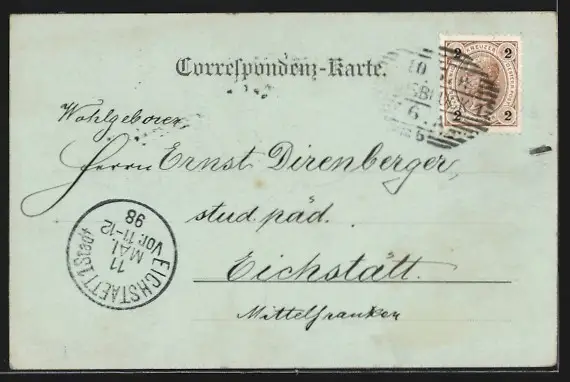 Correspondenz-Karte.
2 KREUZER 2
2 2
10
SBRUCK 1
6
Wohlgeboren
Herrn Ernst Direnberger,
stud. päd.
Eichstätt.
Mittelfranken
EICHSTAETT I
11
MAI
Vor. 11-12
98